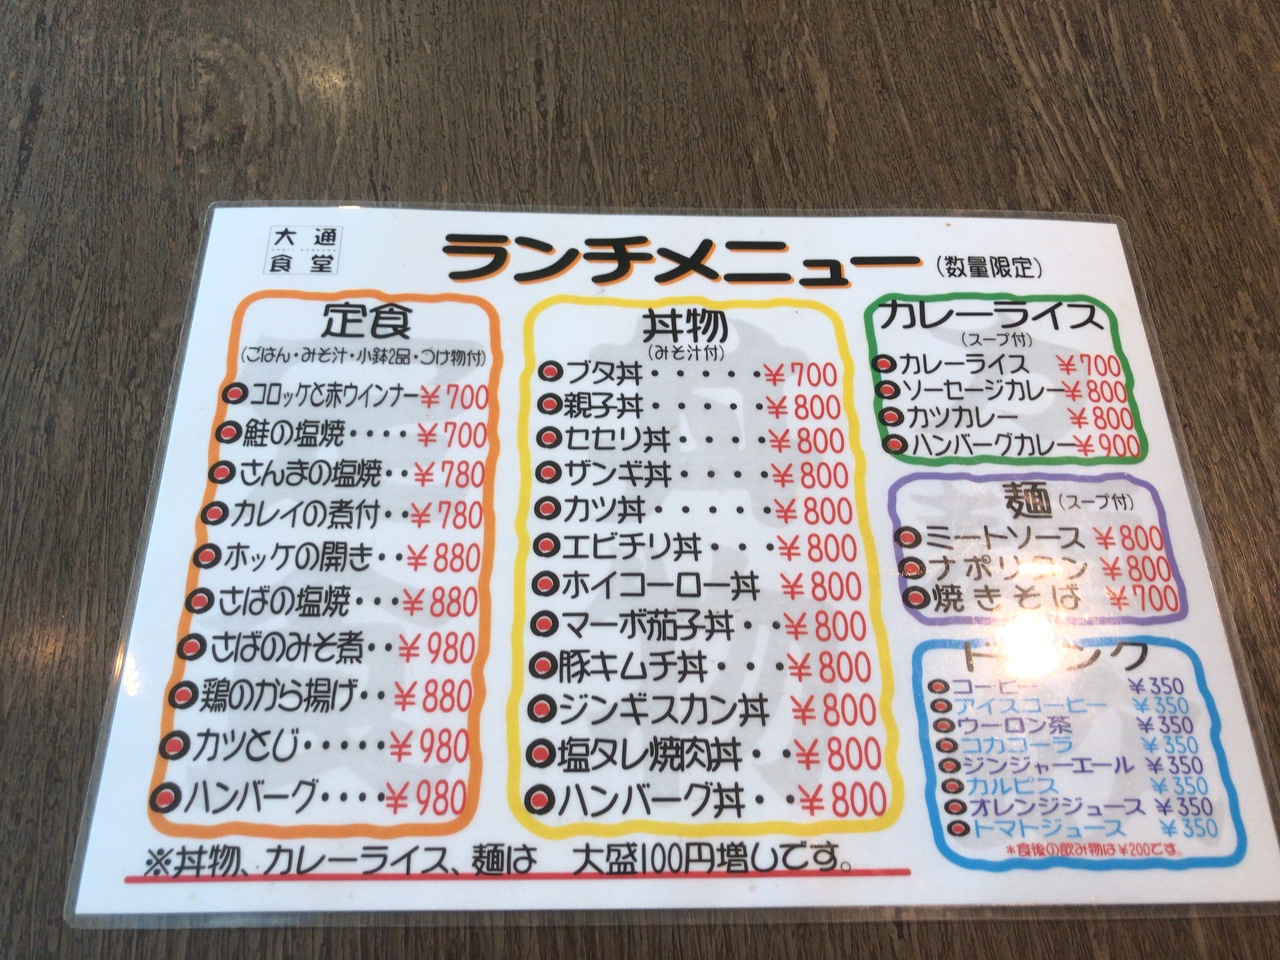 大通
食堂
ランチメニュー(数量限定)
定食
(ごはん・みそ汁・小鉢2品・つけ物付)
コロッケと赤ウインナー ¥700
鮭の塩焼・・・・¥700
さんまの塩焼・・¥780
カレイの煮付・・¥780
ホッケの開き・・¥880
さばの塩焼・・・¥880
さばのみそ煮・・¥980
鶏のから揚げ・・¥880
カツとじ・・・・・¥980
ハンバーグ・・・・¥980
丼物
(みそ汁付)
ブタ丼・・・・・¥700
親子丼・・・・・¥800
セセリ丼・・・・¥800
ザンギ丼・・・・¥800
カツ丼・・・・・¥800
エビチリ丼・・・¥800
ホイコーロー丼 ¥800
マーボ茄子丼・・¥800
豚キムチ丼・・・¥800
ジンギスカン丼 ¥800
塩タレ焼肉丼・・¥800
ハンバーグ丼・・¥800
カレーライス
(スープ付)
カレーライス ¥700
ソーセージカレー ¥800
カツカレー ¥800
ハンバーグカレー ¥900
麺(スープ付)
ミートソース ¥800
ナポリタン ¥800
焼きそば ¥700
ドリンク
コーヒー ¥350
アイスコーヒー ¥350
ウーロン茶 ¥350
コカコーラ ¥350
ジンジャーエール ¥350
カルピス ¥350
オレンジジュース ¥350
トマトジュース ¥350
*食後の飲み物は¥200です。
※丼物、カレーライス、麺は 大盛100円増しです。